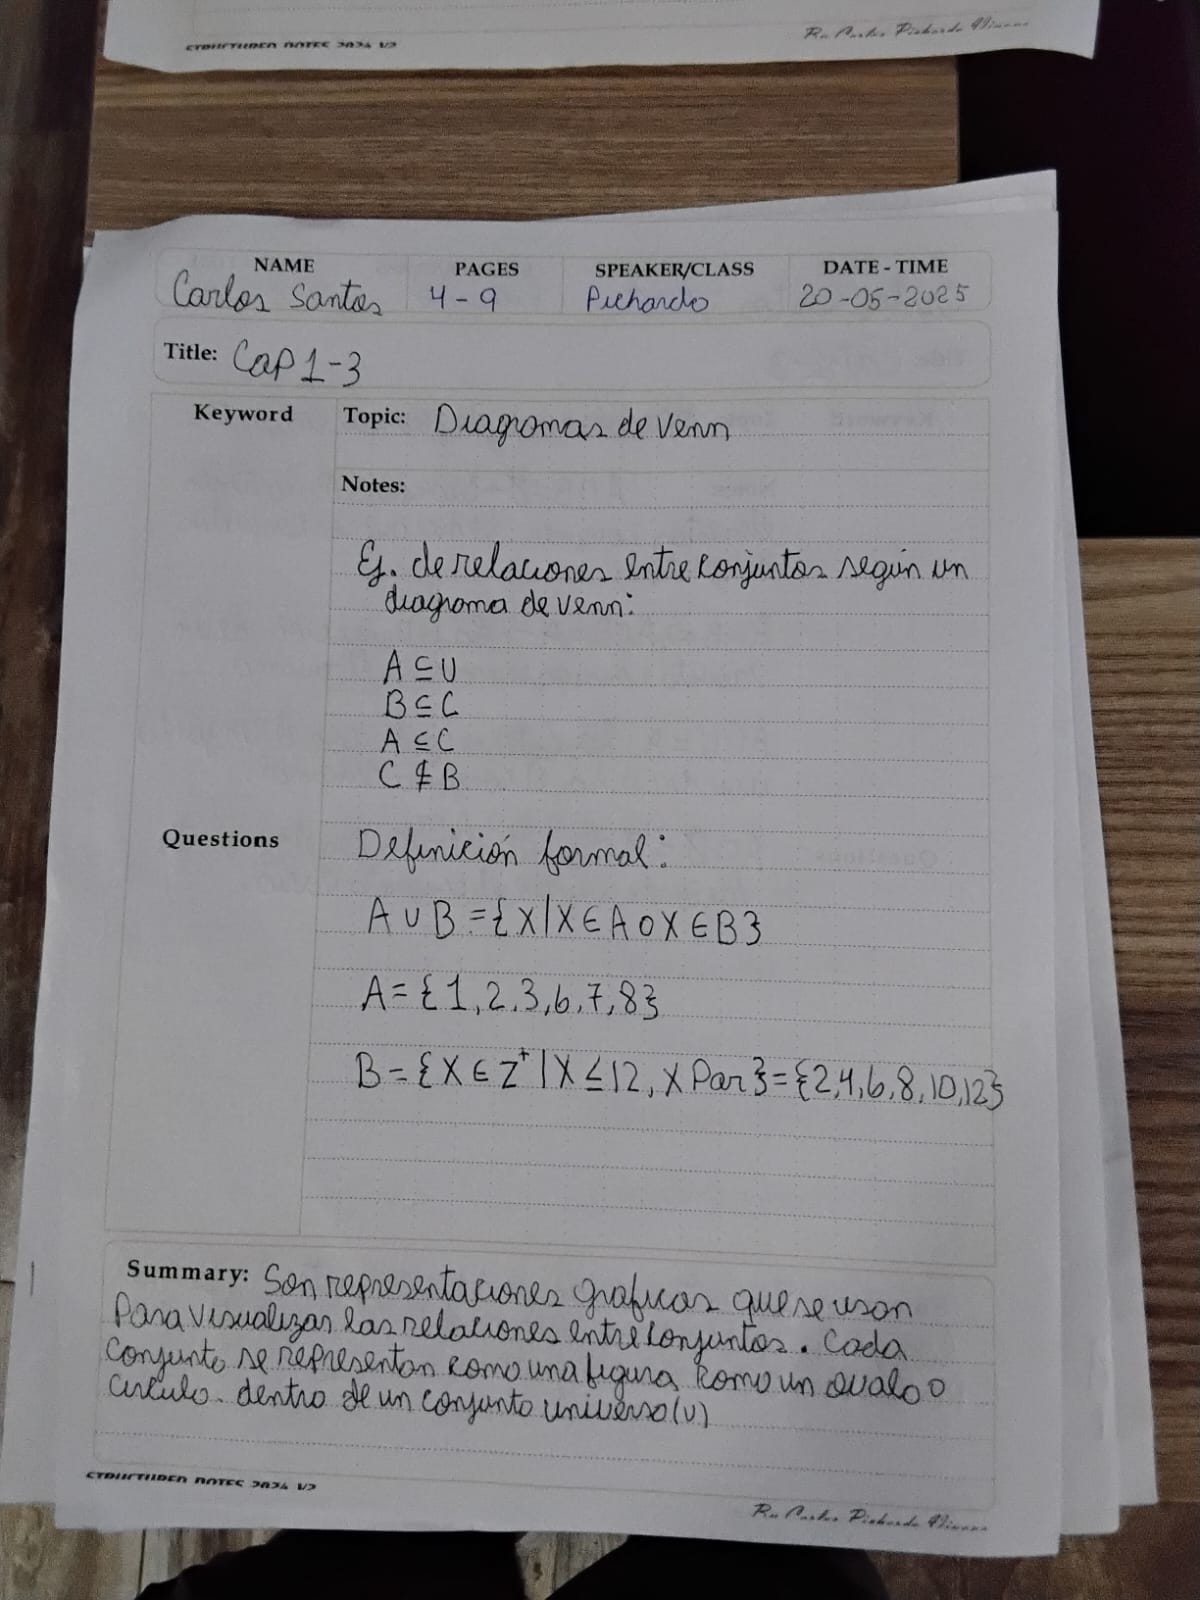 STRUCTURED NOTES 2024 V2
NAME PAGES SPEAKER/CLASS DATE - TIME
Carlos Santos 4-9 Pichardo 20-05-2025
Title: Cap 1-3
Keyword Topic: Diagramas de Venn
Notes:
Ej. de relaciones entre conjuntos según un
diagrama de venn:
A ⊆ U
B ⊆ C
A ⊆ C
C ⊈ B
Questions Definición formal:
A ∪ B = {X|X ∈ A o X ∈ B}
A = {1, 2, 3, 6, 7, 8}
B = {X ∈ Z⁺ | X ≤ 12, X Par} = {2,4,6,8,10,12}
Summary: Son representaciones graficas que se usan
Para visualizar las relaciones entre conjuntos. Cada
conjunto se representan como una figura, como un ovalo o
circulo. dentro de un conjunto universo (U)
STRUCTURED NOTES 2024 V2